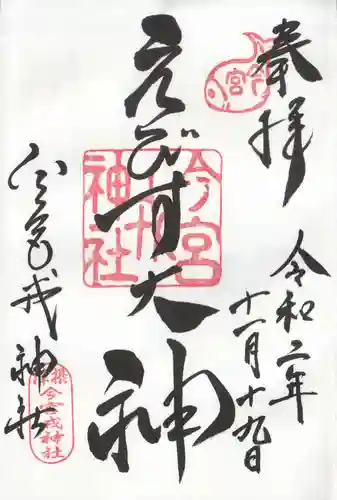 奉拝
令和二年
十一月十九日
えびす大神
今宮戎神社
今宮
今宮戎神社
今宮戎神社